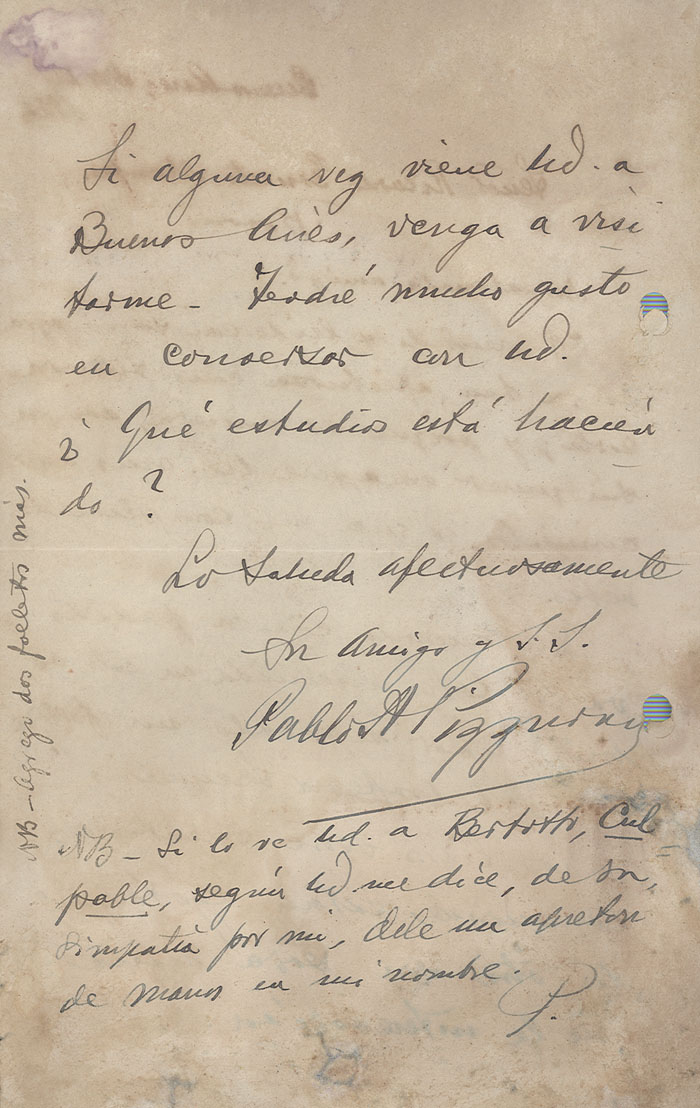 Si alguna vez viene Ud. a
Buenos Aires, venga a visi
tarme - Tendré mucho gusto
en conversar con Ud.
¿ Qué estudios está hacién
do ?
Lo saluda afectuosamente
Su amigo y S. S.
Pablo A Pizzurno
NB - Si lo ve Ud. a Bertotto, Cul
pable, según Ud me dice, de su
simpatía por mi, déle un apretón
de manos en mi nombre.
P.
NB - Agrego dos folletos más.